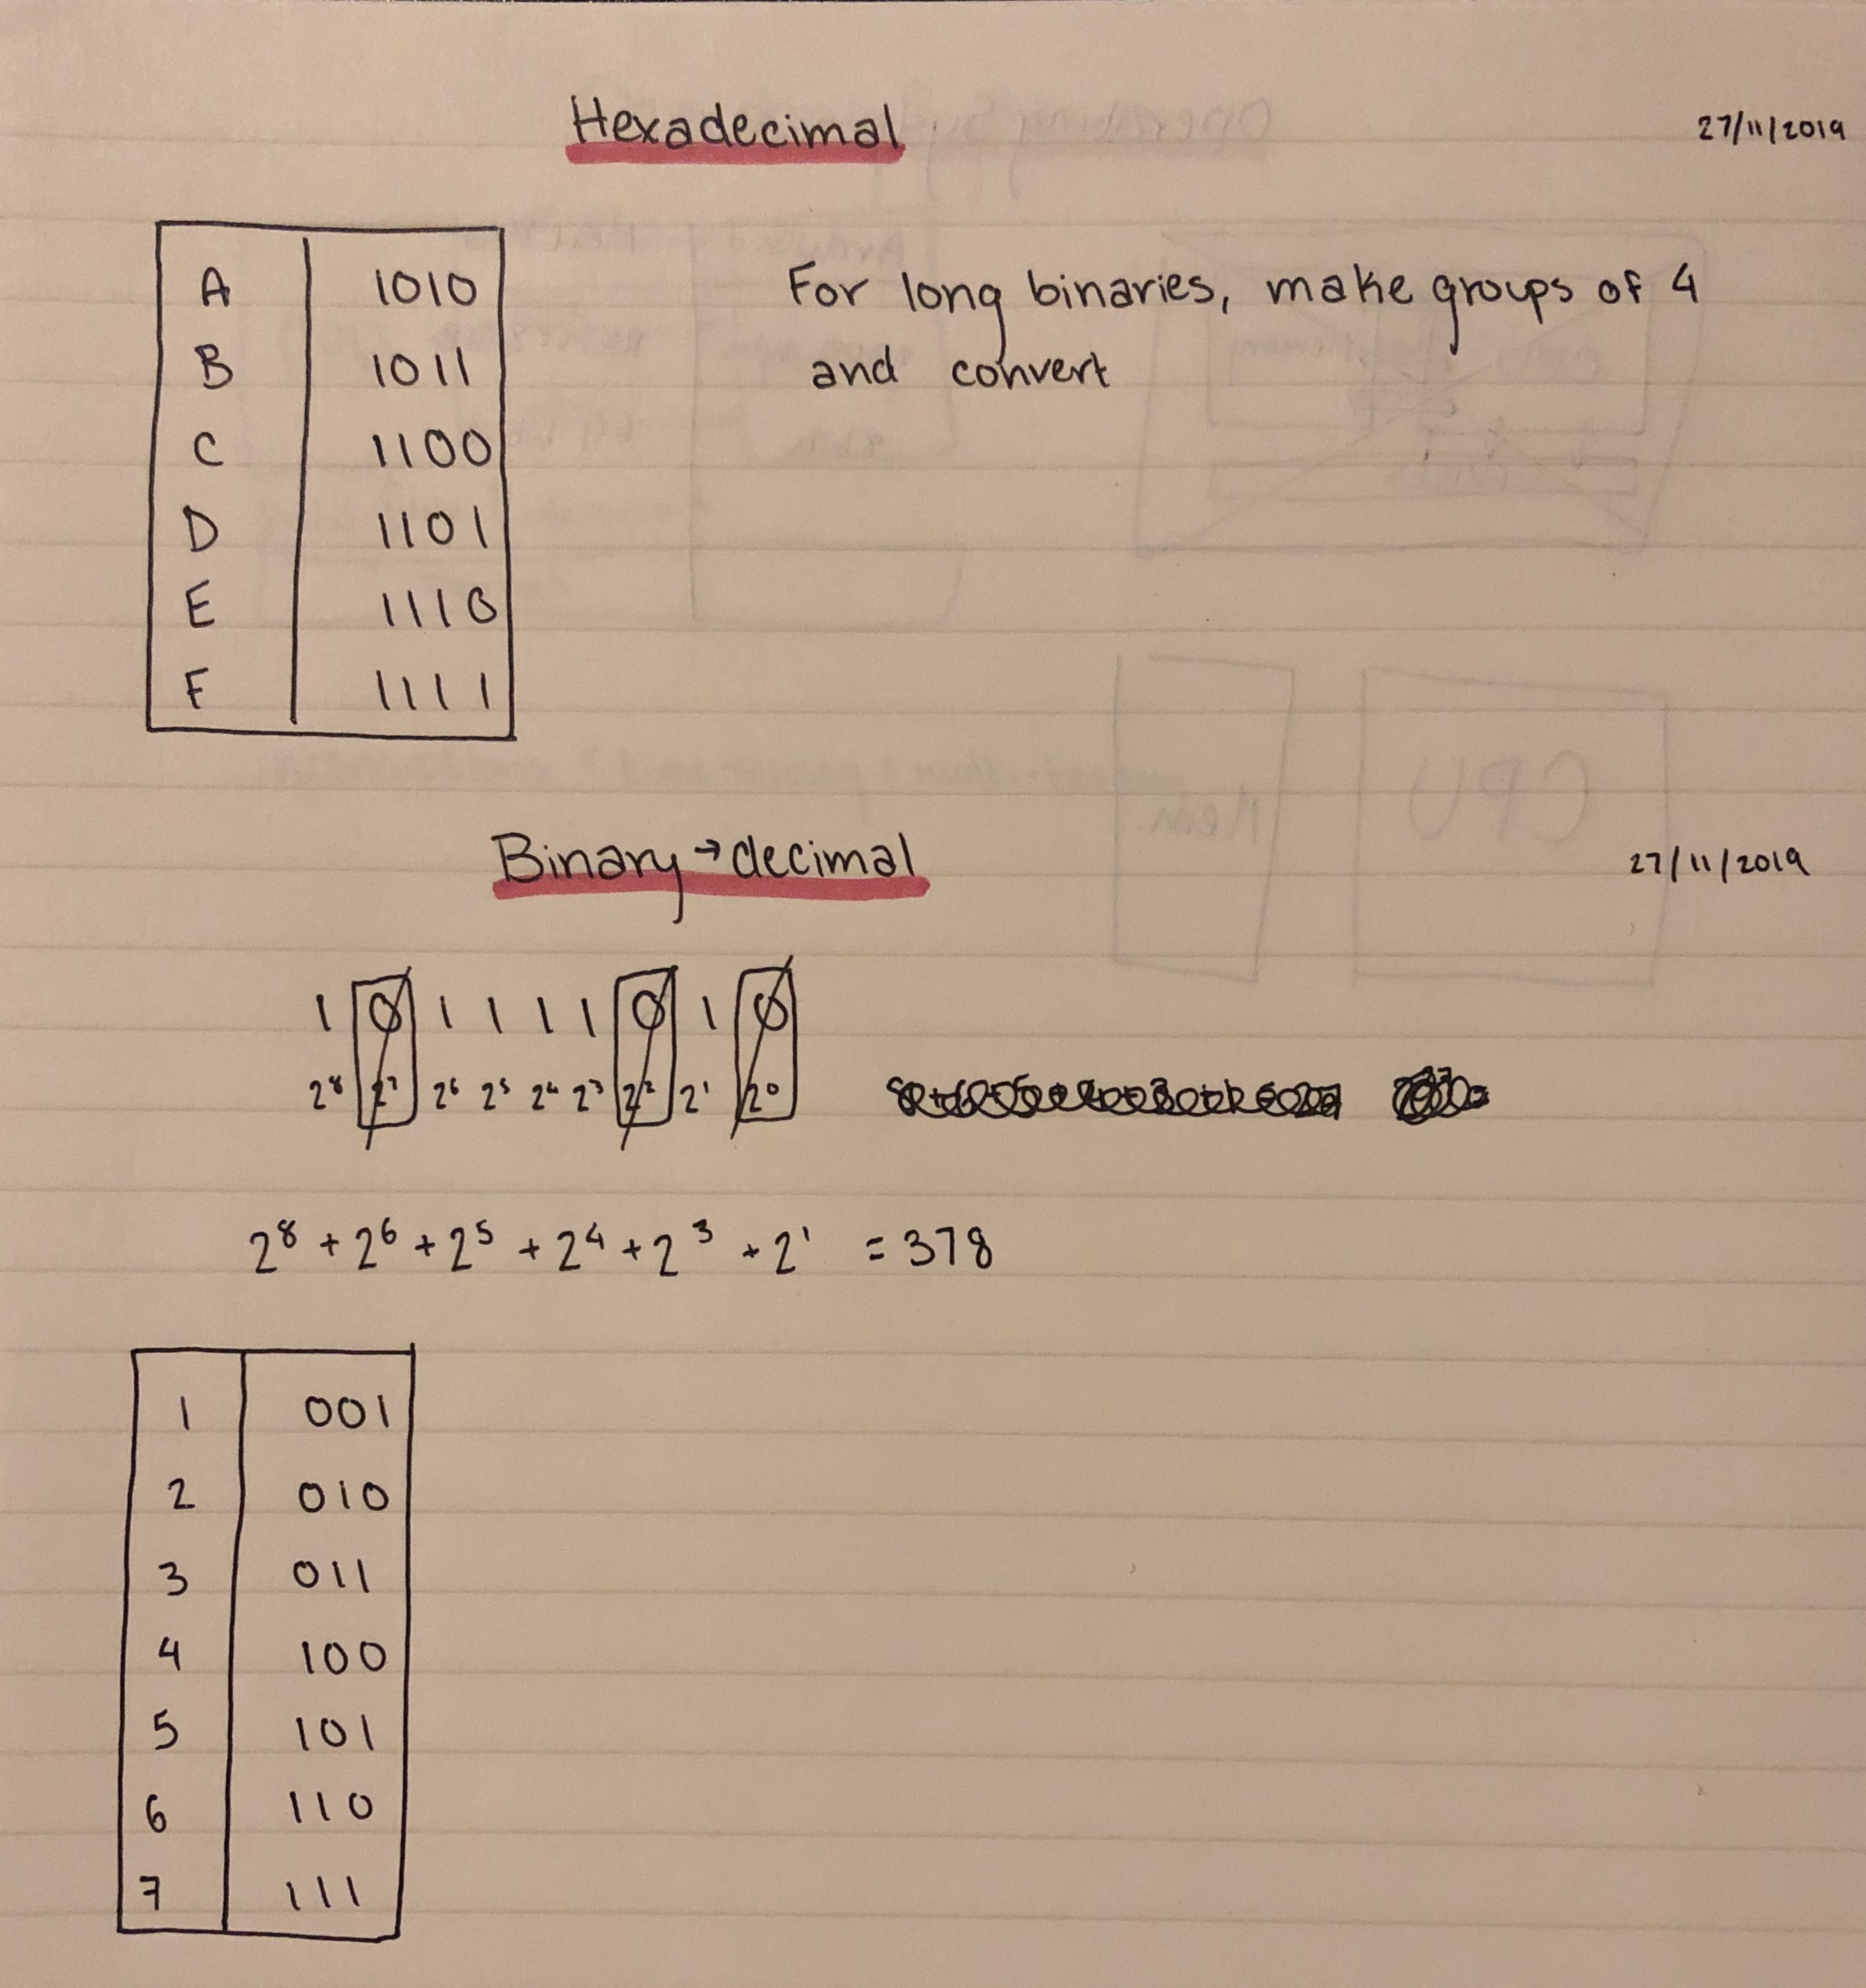 Hexadecimal 27/11/2019
A 1010
B 1011
C 1100
D 1101
E 1110
F 1111
For long binaries, make groups of 4
and convert
Binary → decimal 27/11/2019
1 0 1 1 1 1 0 1 0
2⁸ 2⁷ 2⁶ 2⁵ 2⁴ 2³ 2² 2¹ 2⁰
2⁸ + 2⁶ + 2⁵ + 2⁴ + 2³ + 2¹ = 378
1 001
2 010
3 011
4 100
5 101
6 110
7 111